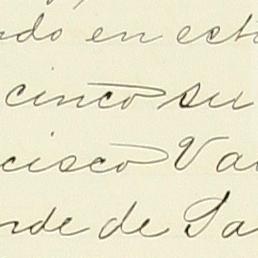 ndo en esta
cinco su
cisco Va
nde de Sa